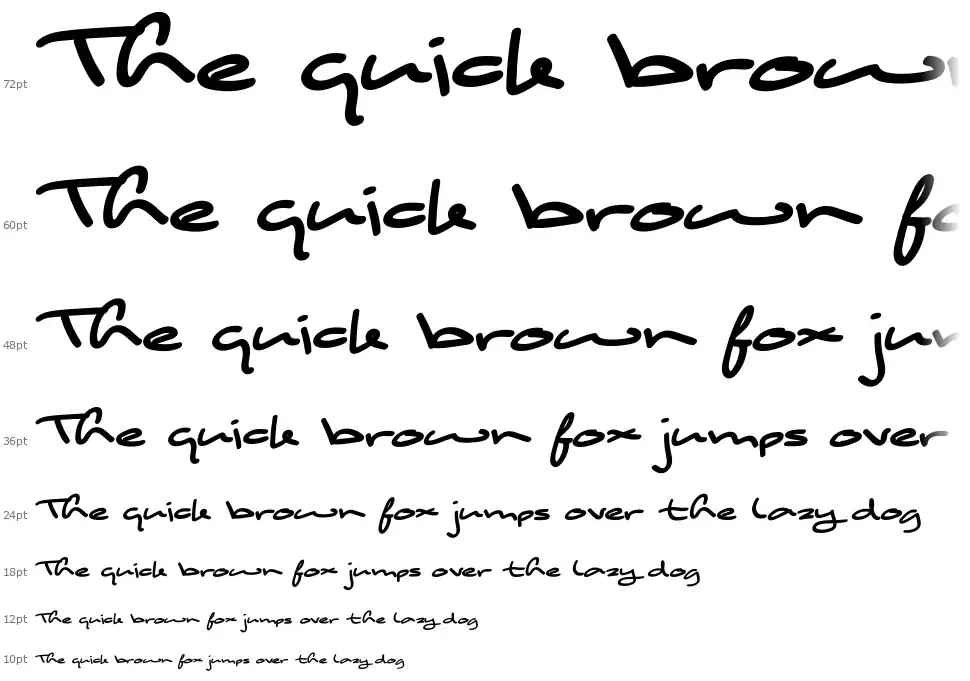 72pt The quick brow
60pt The quick brown fo
48pt The quick brown fox jum
36pt The quick brown fox jumps over
24pt The quick brown fox jumps over the lazy dog
18pt The quick brown fox jumps over the lazy dog
12pt The quick brown fox jumps over the lazy dog
10pt The quick brown fox jumps over the lazy dog